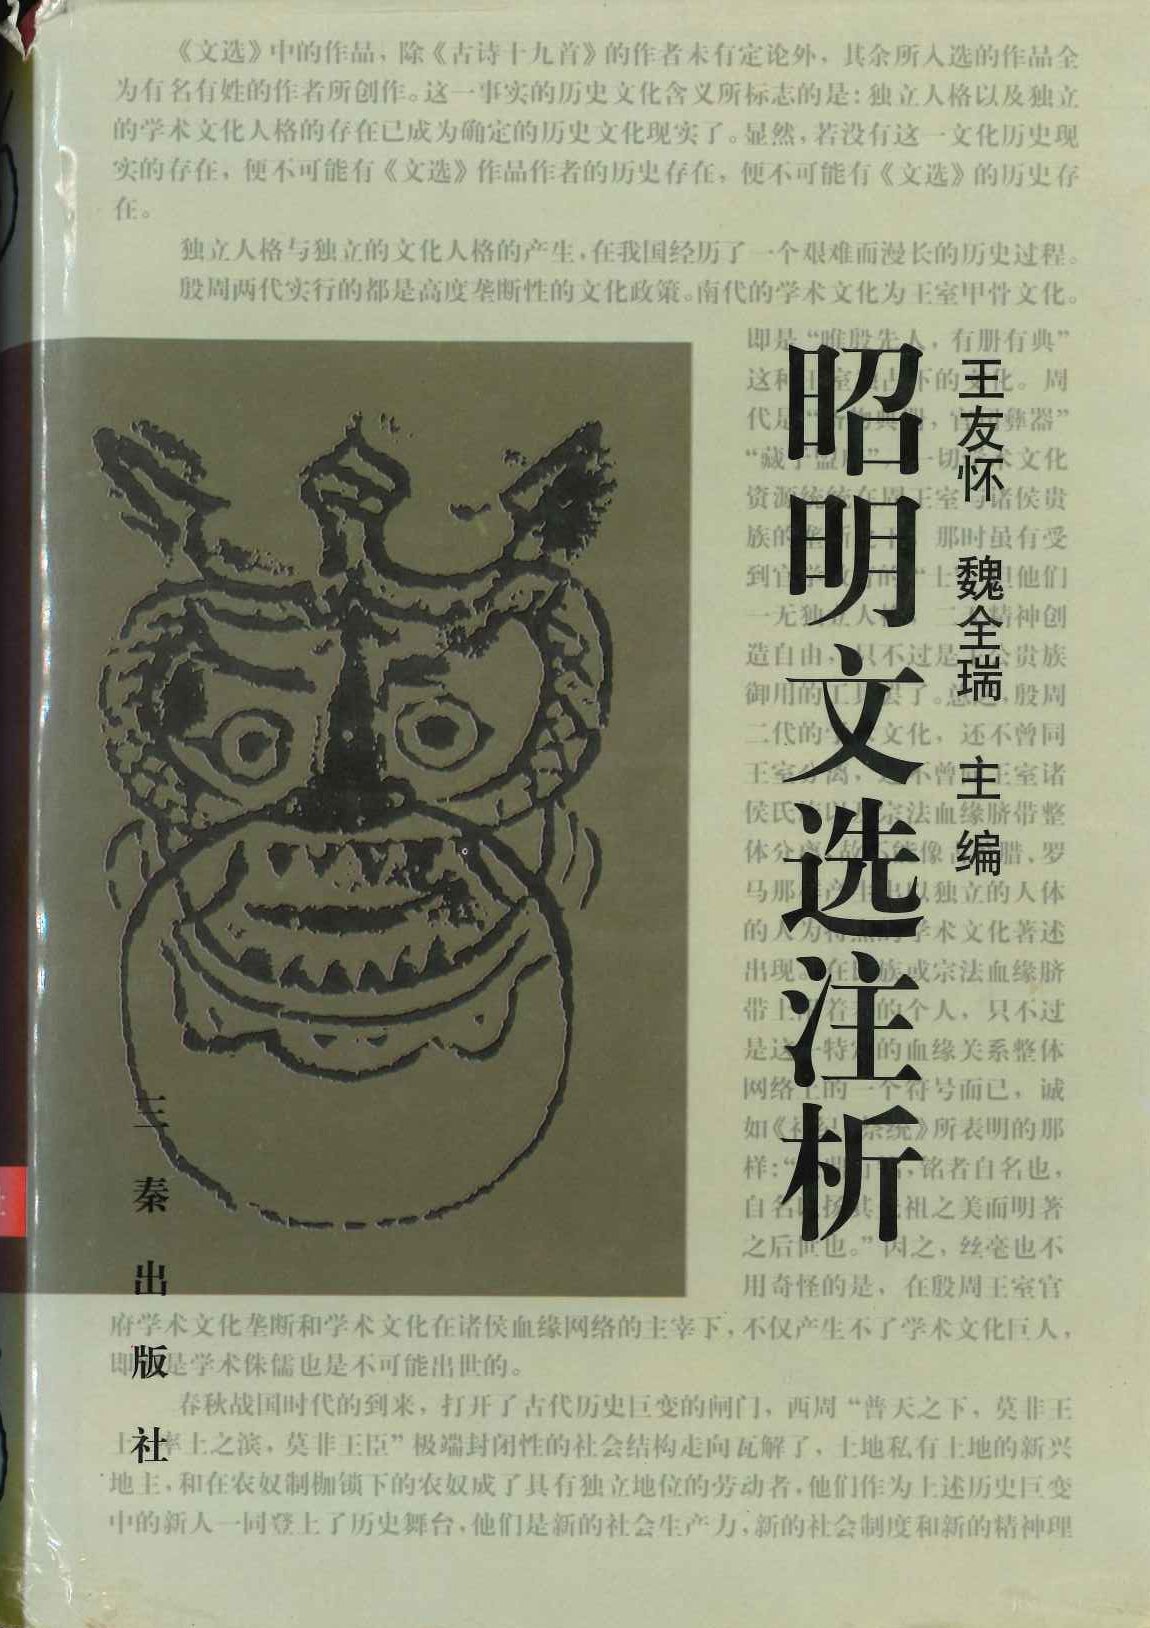 《文选》中的作品，除《古诗十九首》的作者未有定论外，其余所入选的作品全
为有名有姓的作者所创作。这一事实的历史文化含义所标志的是：独立人格以及独立
的学术文化人格的存在已成为确定的历史文化现实了。显然，若没有这一文化历史现
实的存在，便不可能有《文选》作品作者的历史存在，便不可能有《文选》的历史存
在。
独立人格与独立的文化人格的产生，在我国经历了一个艰难而漫长的历史过程。
殷周两代实行的都是高度垄断性的文化政策。南代的学术文化为王室甲骨文化。
昭明文选注析
王友怀 魏全瑞 主编
即是“唯殷先人，有册有典”
这种 下的文化。周
代是 彝器”
“藏于盟府”，一切学术文化
资源统统在周王室与诸侯贵
族的垄断之下。那时虽有受
到官学 “士 但他们
一无独立人 二 精神创
造自由，只不过是 公贵族
御用的工具罢了。总之，殷周
二代的学术文化，还不曾同
王室分离，还不曾 王室诸
侯氏 宗法血缘脐带整
体分离 像 腊、罗
马那样产生出以独立的人体
的人为 学术文化著述
出现。在 族或宗法血缘脐
带上 着 的个人，只不过
是这一特定的血缘关系整体
网络上的一个符号而已，诚
如《 统》所表明的那
样：“ 铭者自名也，
自名以扬其先祖之美而明著
之后世也。”因之，丝毫也不
用奇怪的是，在殷周王室官
府学术文化垄断和学术文化在诸侯血缘网络的主宰下，不仅产生不了学术文化巨人，
即 是学术侏儒也是不可能出世的。
春秋战国时代的到来，打开了古代历史巨变的闸门，西周“普天之下，莫非王
土 率土之滨，莫非王臣”极端封闭性的社会结构走向瓦解了，土地私有土地的新兴
地主，和在农奴制枷锁下的农奴成了具有独立地位的劳动者，他们作为上述历史巨变
中的新人一同登上了历史舞台，他们是新的社会生产力，新的社会制度和新的精神理
三秦出版社